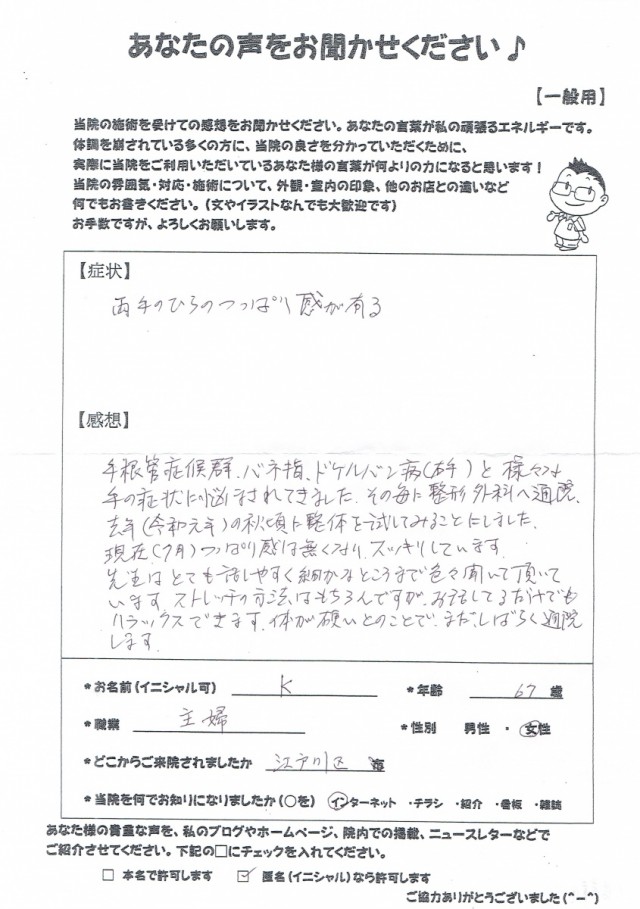 あなたの声をお聞かせください♪
【一般用】
当院の施術を受けての感想をお聞かせください。あなたの言葉が私の頑張るエネルギーです。
体調を崩されている多くの方に、当院の良さを分かっていただくために、
実際に当院をご利用いただいているあなた様の言葉が何よりの力になると思います！
当院の雰囲気・対応・施術について、外観・室内の印象、他のお店との違いなど
何でもお書きください。（文やイラストなんでも大歓迎です）
お手数ですが、よろしくお願いします。
【症状】
両手のひらのつっぱり感が有る
【感想】
手根管症候群、バネ指、ドケルバン病(右手)と様々な
手の症状に悩まされてきました。その毎に整形外科へ通院、
去年(令和元年)の秋頃に整体を試してみることにしました。
現在(7月)つっぱり感は無くなり、スッキリしています。
先生はとても話しやすく細かなところまで色々聞いて頂いて
います。ストレッチの方法はもちろんですが、お話してるだけでも
リラックスできます。体が硬いとのことで、まだ、しばらく通院
します。
*お名前（イニシャル可） K *年齢 67 歳
*職業 主婦 *性別 男性 ・ 女性
*どこからご来院されましたか 江戸川区
*当院を何でお知りになりましたか（○を） インターネット ・チラシ ・紹介 ・看板 ・雑誌
あなた様の貴重な声を、私のブログやホームページ、院内での掲載、ニュースレターなどで
ご紹介させてください。下記の□にチェックを入れてください。
□ 本名で許可します ☑ 匿名（イニシャル）なら許可します
ご協力ありがとうございました（^－^）